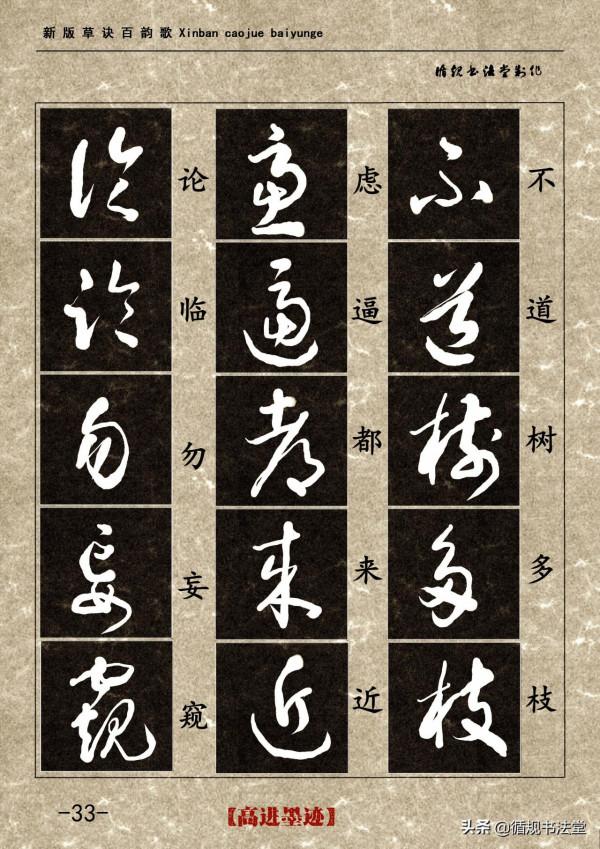 新版草诀百韵歌 Xinban caojue baiyunge
循规书法堂制作
不道树多枝
虑逼都来近
论临勿妄窥
-33-
【高进墨迹】
头条 @循规书法堂